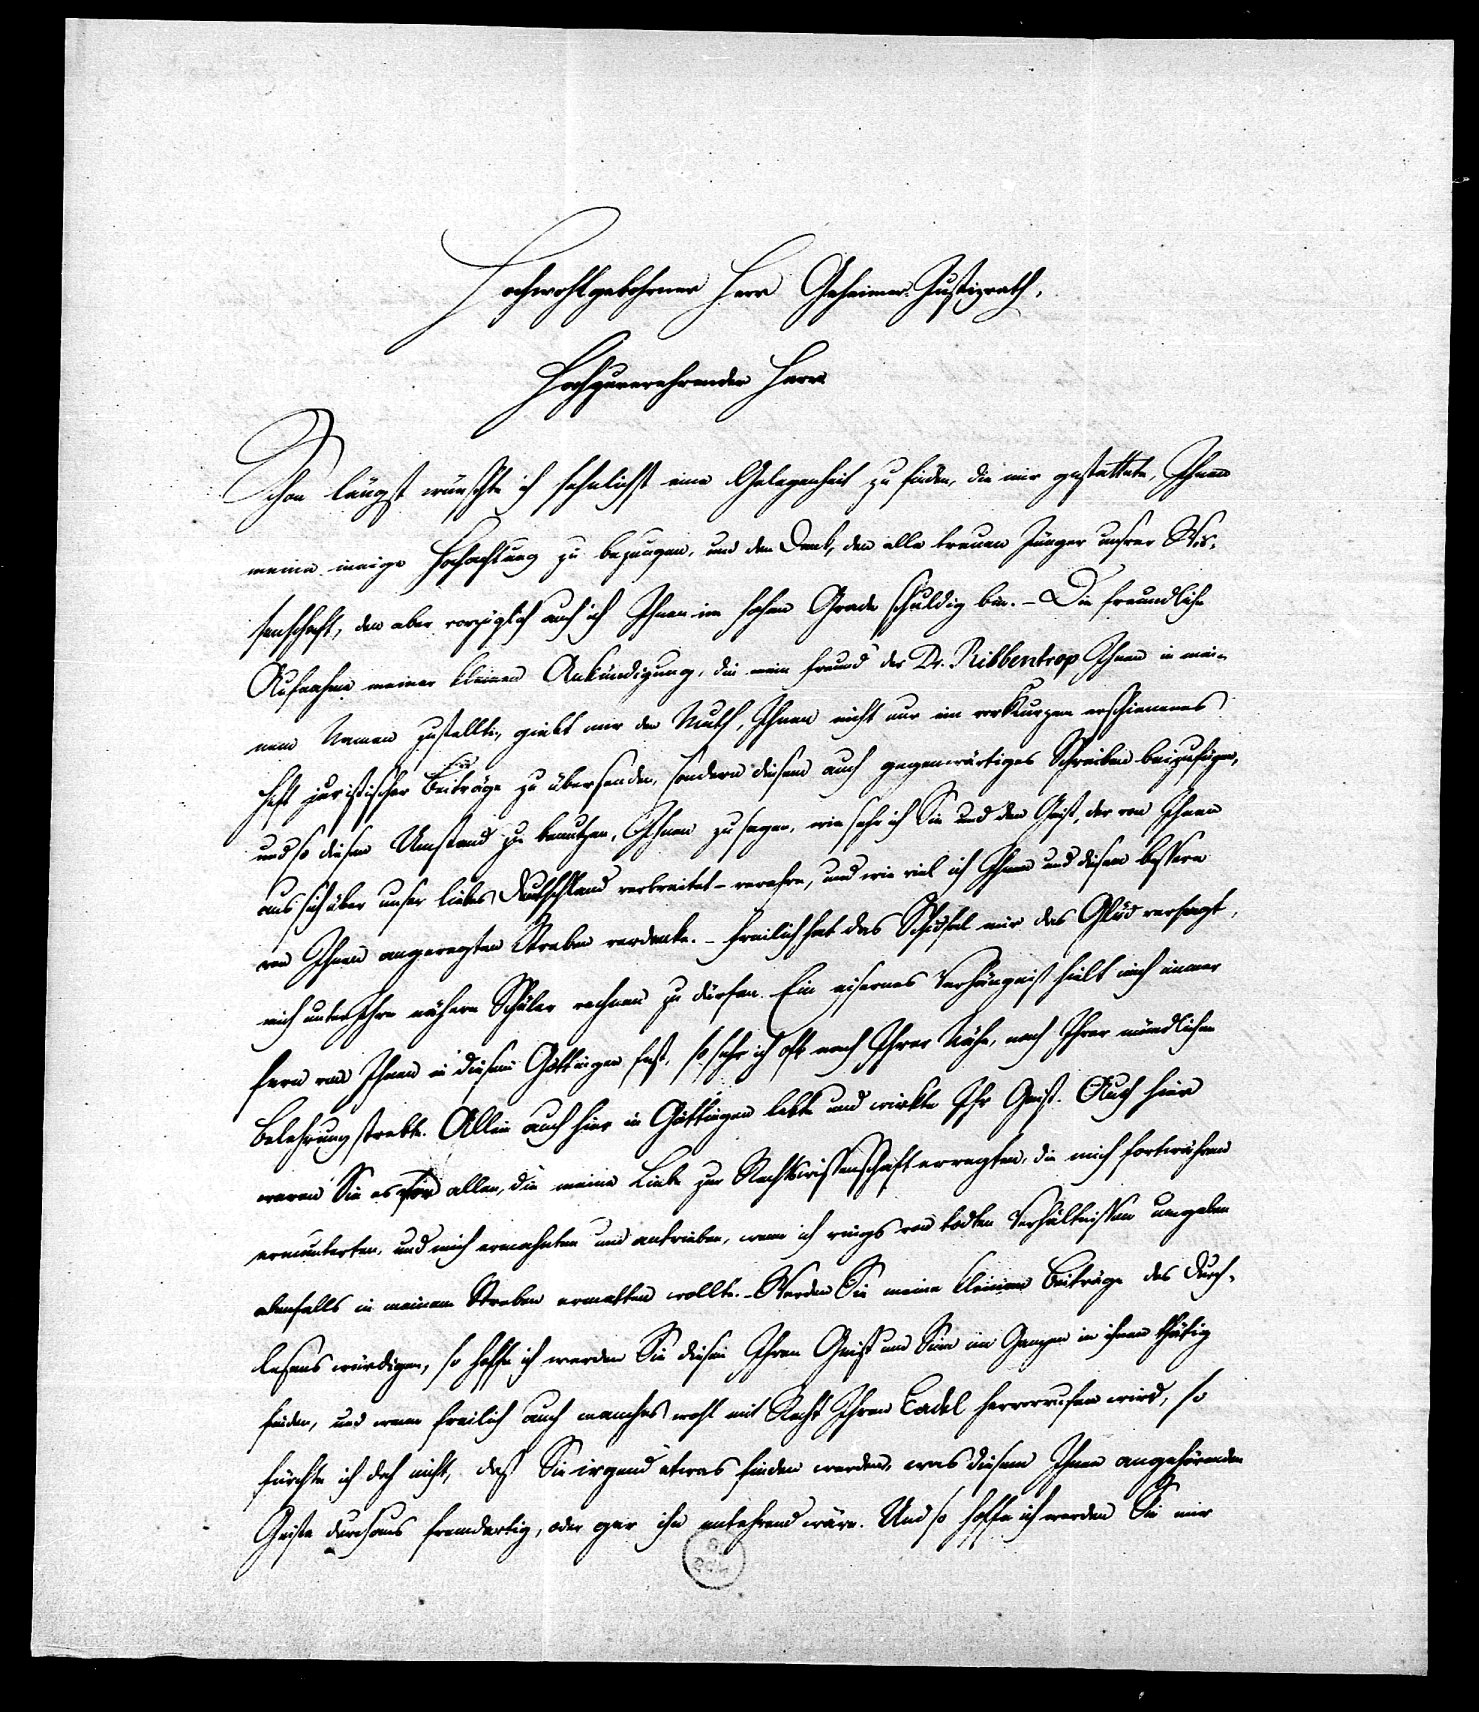 Hochwohlgebohrner Herr Geheimer Justizrath,
Hochzuverehrender Herr
Schon längst wünschte ich sehnlichst eine Gelegenheit zu finden, die mir gestattete, Ihnen
meine innige Hochachtung zu bezeugen, und den Dank, den alle treuen Jünger unsrer Wis-
senschaft, den aber vorzüglich auch ich Ihnen im hohen Grade schuldig bin. – Die freundliche
Aufnahme meiner kleinen Ankündigung, die mein Freund der Dr. Ribbentrop Ihnen in mei-
nem Namen zustellte, giebt mir den Muth, Ihnen nicht nur ein vor Kurzem erschienenes
Heft juristischer Beiträge zu übersenden, sondern diesem auch gegenwärtiges Schreiben beizufügen,
und so diesen Umstand zu benutzen, Ihnen zu sagen, wie sehr ich Sie und den Geist, der von Ihnen
aus sich über unser liebes Deutschland verbreitet – verehre, und wie viel ich Ihnen und diesem bessern
von Ihnen angeregten Streben verdanke. – Freilich hat das Schicksal mir das Glück versagt,
mich unter Ihre nähern Schüler rechnen zu dürfen. Ein eisernes Verhängniß hielt mich immer
fern von Ihnen in diesem Göttingen fest, so sehr ich oft nach Ihrer Nähe, nach Ihrer mündlichen
Belehrung strebte. Allein auch hier in Göttingen lebte und wirkte Ihr Geist. Auch hier
waren Sie es vor allen, die meine Liebe zur Rechtswissenschaft erregten, die mich fortwährend
ermunterten, und mich ermahnten und antrieben, wenn ich rings von todten Verhältnissen umgeben
ebenfalls in meinem Streben ermatten wollte. – Werden Sie meine kleinen Beiträge des Durch-
lesens würdigen, so hoffe ich werden Sie diesen Ihren Geist und Sinn im Ganzen in ihnen thätig
finden, und wenn freilich auch manches wohl mit Recht Ihren Tadel hervorrufen wird, so
fürchte ich doch nicht, daß Sie irgend etwas finden werden, was diesem Ihnen angehörenden
Geiste durchaus fremdartig, oder gar ihn entehrend wäre. Und so hoffe ich werden Sie mir